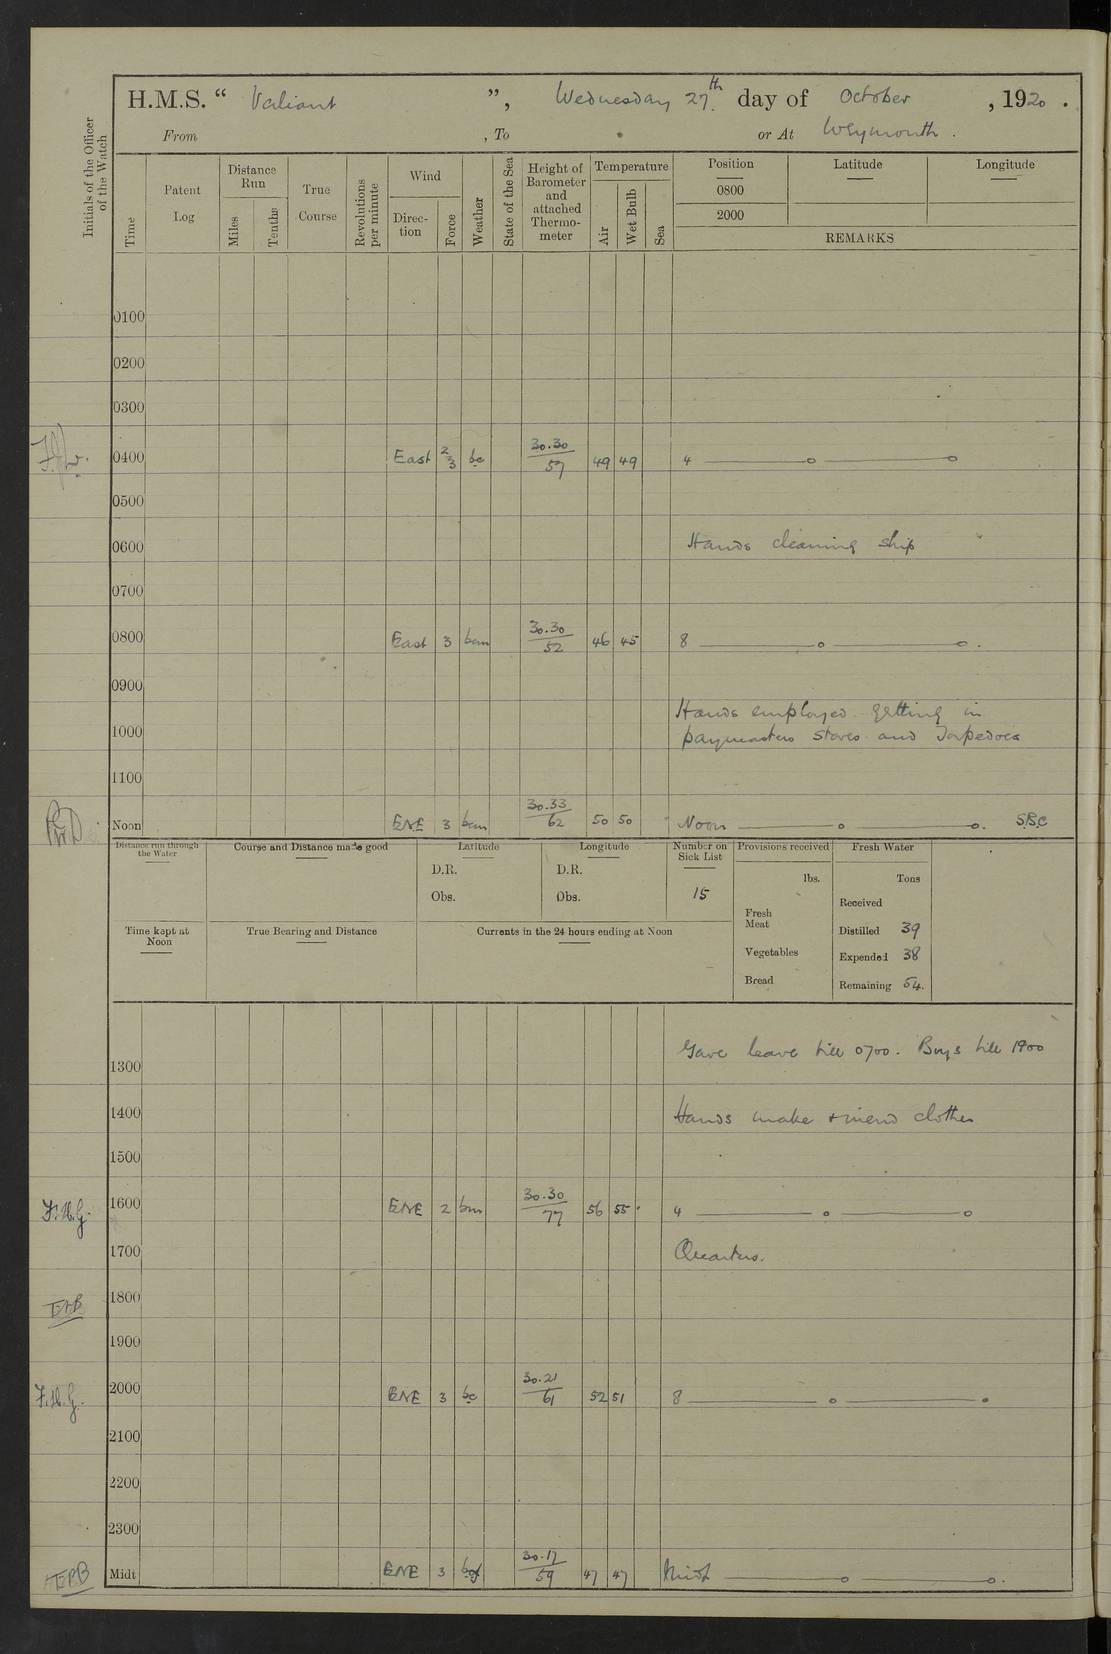 H.M.S. “ Valiant ”, Wednesday 27th. day of October , 1920 .
From , To or At Weymouth .
Initials of the Officer of the Watch
Time
Patent Log
Distance Run
Miles
Tenths
True Course
Revolutions per minute
Wind
Direc- tion
Force
Weather
State of the Sea
Height of Barometer and attached Thermo- meter
Temperature
Air
Wet Bulb
Sea
Position
0800
2000
Latitude
Longitude
REMARKS
0100
0200
0300
0400 East 2/3 bc 30.30/57 49 49 4 —o—o
0500
0600 Hands cleaning ship
0700
0800 East 3 bcm 30.30/52 46 45 8 —o—o .
0900
Hands employed getting in
1000 paymasters stores and Torpedoes
1100
Noon ENE 3 bcm 30.33/62 50 50 Noon —o—o. S.B.C
Distance run through the Water
Course and Distance made good
Latitude
D.R.
Obs.
Longitude
D.R.
Obs.
Number on Sick List
15
Provisions received
lbs.
Fresh Meat
Vegetables
Bread
Fresh Water
Tons
Received
Distilled 39
Expended 38
Remaining 54.
Time kept at Noon
True Bearing and Distance
Currents in the 24 hours ending at Noon
Gave leave till 0700. Boys till 1900
1300
1400 Hands make & mend clothes
1500
F.H.G. 1600 ENE 2 bm 30.30/77 56 55 4 —o—o
1700 Quarters.
1800
1900
F.H.G. 2000 ENE 3 bc 30.21/61 52 51 8 —o—o
2100
2200
2300
Midt ENE 3 30.17/59 47 47 Midt —o—o.